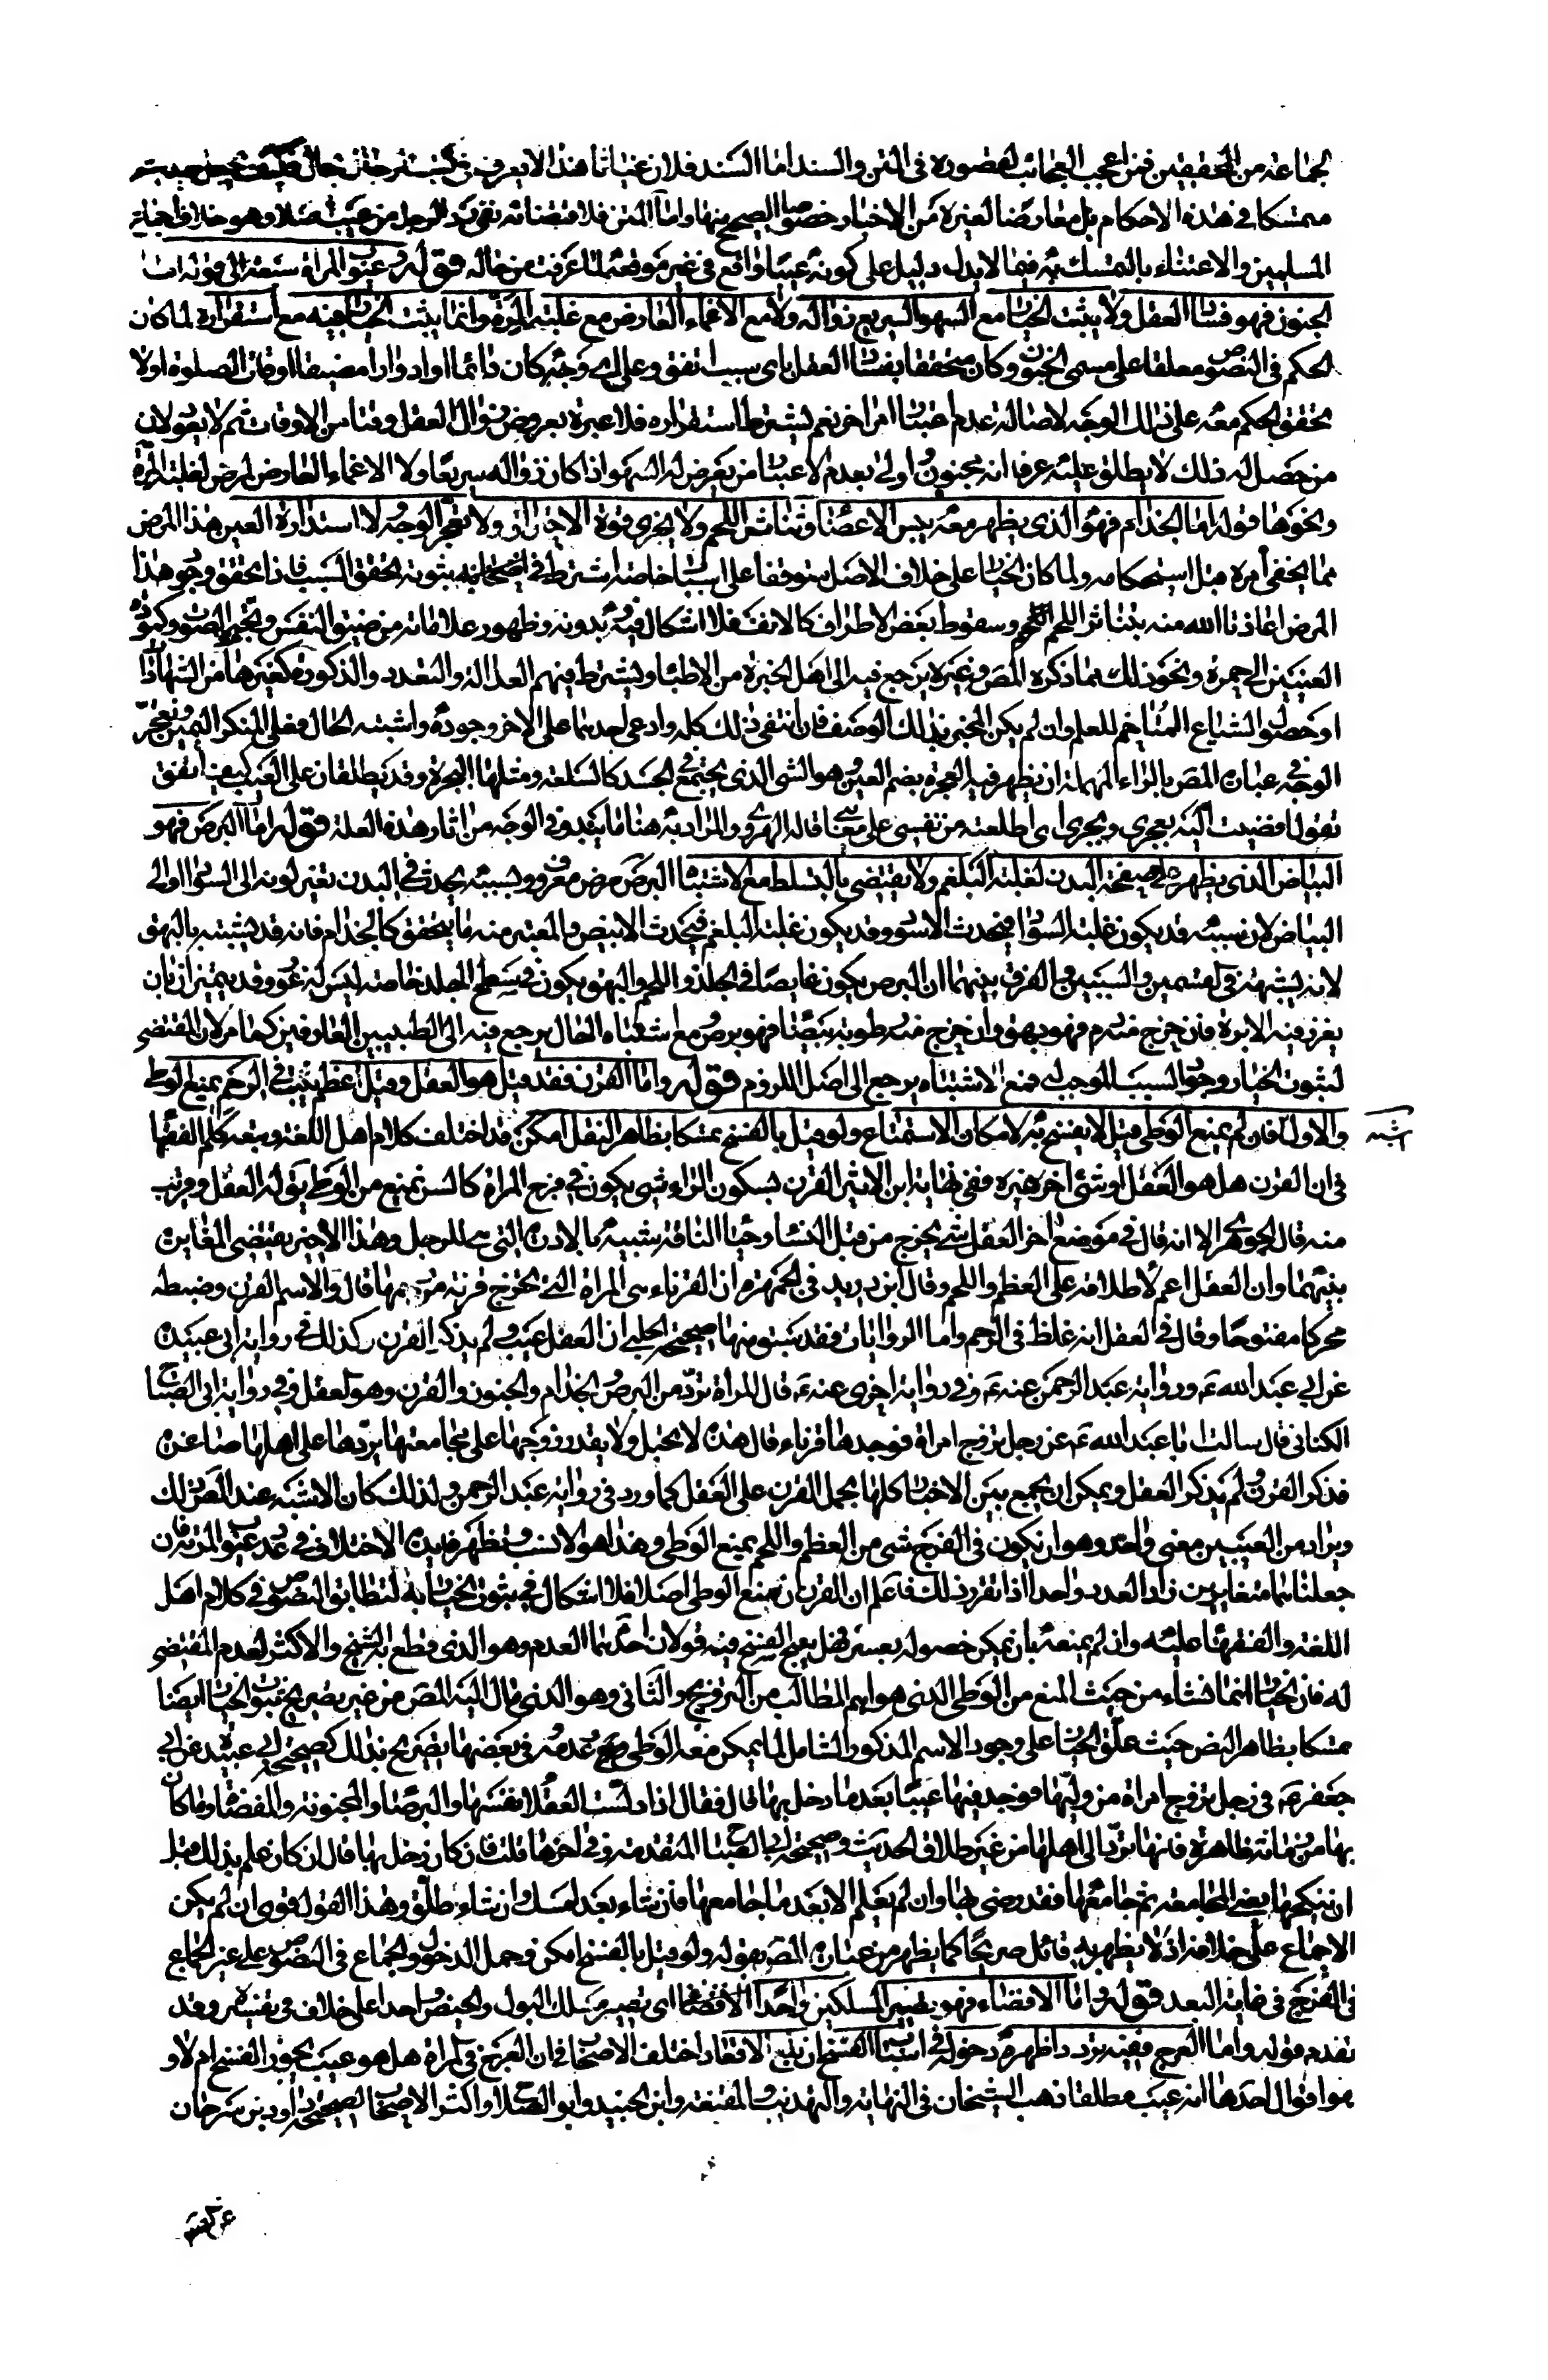 لجماعة من المحققين فمن اعجب العجائب لقصوره فى المتن والسند اما السند فلان غياثا هذا لا يعرف فى كتب الرجال بحال فكيف يجعل حديثه
متمسكا فى هذه الاحكام بل معارضا لغيره من الاخبار خصوصا الصحيح منها واما المتن فلاقتضائه نفى رد الرجل من عيب اصلا وهو خلاف اجماع
المسلمين والاعتناء بالتمسك به فيما لا يدل دليل على كونه عيبا واقع فى غير موقعه لما عرفت من حاله قوله عيوب المراة سبعة الى قوله اما
الجنون فهو فساد العقل ولا يثبت الخيار مع السهو السريع زواله ولا مع الاغماء العارض مع غلبة المرة وانما يثبت الخيار فيه مع استقراره لما كان
الحكم فى النصوص معلقا على مسمى الجنون وكان متحققا بفساد العقل باى سبب اتفق وعلى اى وجه كان دائما او ادوارا مضيقا اوقات الصلوة اولا
تحقق الحكم معه على ذلك الوجه لاصالة عدم اعتبار امر اخر نعم يشترط استقراره فلا عبرة بعروض زوال العقل وقتا من الاوقات ثم لا يعود لان
من حصل له ذلك لا يطلق عليه عرفا انه مجنون اولى بعدم الاعتبار من يعرض له السهو اذا كان زواله سريعا ولا الاغماء العارض لمرض لغلبة المرة
ونحوها قوله اما الجذام فهو الذى يظهر معه يبس الاعضاء وتناثر اللحم ولا يجزى قوة الاحتراق ولا تعجر الوجه ولا استدارة العين هذا المرض
مما يخفى امره قبل استحكامه ولما كان الخيار على خلاف الاصل متوقفا على اسباب خاصة اشترط فى الحكم بثبوته تحقق السبب فاذا تحقق وجود هذا
المرض اعاذنا الله منه بتناثر اللحم وسقوط بعض الاطراف كالانف فلا اشكال فيه وبدونه وظهور علاماته من ضيق النفس وبحة الصوت وكمودة
العينين الى حمرة ونحو ذلك مما ذكره المص وغيره يرجع فيه الى اهل الخبرة من الاطباء ويشترط فيهم العدالة والتعدد والذكورة كغيرها من الشهادات
او حصول الشياع المتاخم للعلم وان لم يكن المخبر بذلك الوصف فان انتفى ذلك كله وادعى احدهما على الاخر وجوده واشتبه الحال فعلى المنكر اليمين وتعجر
الوجه فى عبارة المص بالراء المهملة ان يظهر فيه العجرة بضم العين وهو الشئ الذى يجتمع فى الجسد كالسلعة ومثلها البجرة وقد يطلقان على العيب يقال اتفق
تقول افضيت اليه بعجرى وبجرى اى اطلعته من نفسى على معايبى قاله الهروى والمراد به هنا ما يبدو فى الوجه من اثار هذه العلة قوله واما البرص فهو
البياض الذى يظهر على صفحة البدن لغلبة البلغم ولا يقتضى بالتسلط مع الاشتباه البرص مرض معروف وبسببه يحدث فى البدن تغير لونه الى السواد او الى
البياض لان سببه قد يكون غلبة السوداء فيحدث الاسود وقد يكون غلبة البلغم فيحدث الابيض والمعتبر منه ما يتحقق كالجذام فانه قد يشتبه بالبهق
لانه يشبهه فى القسمين والسببين والفرق بينهما ان البرص يكون غايصا فى الجلد واللحم والبهق يكون فى سطح الجلد خاصة ليس له غور وقد يتميزان بان
يغرز فيه الابرة فان خرج منه دم فهو بهق وان خرج منه رطوبة بيضاء فهو برص ومع اشتباه الحال يرجع فيه الى الطبيبين العارفين كما مر لان المقتضى
لثبوت الخيار وجود السبب الموجب له فمع الاشتباه يرجع الى اصل اللزوم قوله واما القرن فقد قيل هو العفل وقيل عظم ينبت فى الرحم يمنع الوطى
والاول اشبه فان لم يمنع الوطى قيل لا يفسخ به لامكان الاستمتاع ولو قيل بالفسخ تمسكا بظاهر النقل امكن قد اختلف كلام اهل اللغة وتبعه كلام الفقهاء
فى ان القرن هل هو العفل او شئ اخر غيره ففى نهاية ابن الاثير القرن بسكون الراء شئ يكون فى فرج المراة كالسن يمنع من الوطى يقال له العفل وقريب
منه قال الجوهرى الا انه قال فى موضع اخر العفل شئ يخرج من قبل النساء وحياء الناقة شبيه بالادرة التى للرجل وهذا الاخير يقتضى المغايرة
بينهما وان العفل اعم لاطلاقه على العظم واللحم وقال ابن دريد فى الجمهرة ان القرناء هى المراة التى تخرج قرنة من رحمها قال والاسم القرن وضبطه
محركا مفتوحا وقال فى العفل انه غلظ فى الرحم واما الروايات فقد سبق منها صحيحة الحلبى ان العفل عيب ولم يذكر القرن وكذلك فى رواية ابى عبيدة
عن ابى عبد الله ع ورواية عبد الرحمن عنه ع وفى رواية اخرى عنه ع قال المراة ترد من البرص والجذام والجنون والقرن وهو العفل وفى رواية ابى الصباح
الكنانى قال سالت ابا عبد الله ع عن رجل تزوج امراة فوجد بها قرناء قال هذه لا تحبل ولا يقدر زوجها على مجامعتها يردها على اهلها صاغرة
فذكر القرن ولم يذكر العفل ويمكن ان يجمع بين الاخبار كلها بحمل القرن على العفل كما ورد فى رواية عبد الرحمن ولذلك كان الاشبه عند المص ذلك
ويراد من العيبين معنى واحد وهو ان يكون فى الفرج شئ من العظم واللحم يمنع الوطى وهذا هو الانسب وتظهر فايدة الاختلاف فى عدد عيوب المراة فان
جعلناهما متغايرين زاد العدد واحدا اذا تقرر ذلك فاعلم ان القرن ان منع الوطى اصلا فلا اشكال فى ثبوت الخيار به لتطابق النصوص وكلام اهل
اللغة والفقهاء عليه وان لم يمنعه بان يمكن حصوله بعسر فهل يبيح الفسخ فيه قولان احدهما العدم وهو الذى قطع به الشيخ والاكثر لعدم المقتضى
له فان الخيار انما نشاء من حيث المنع من الوطى الذى هو اهم المطالب من التزويج والثانى وهو الذى مال اليه المص من غير تصريح ثبوت الخيار ايضا
تمسكا بظاهر النص حيث علق الخيار على وجود الاسم المذكور الشامل لما يمكن معه الوطى وعدمه فى بعضها تصريح بذلك كصحيحة ابى عبيدة عن ابى
جعفر ع فى رجل تزوج امراة من وليها فوجد فيها عيبا بعدما دخل بها قال فقال اذا دلست العفلاء نفسها والبرصاء والمجنونة والمفضاة وما كان
بها من زمانة ظاهرة فانها ترد الى اهلها من غير طلاق الحديث وصحيحة ابى الصباح المتقدمة وفى اخرها قلت فان كان دخل بها قال ان كان علم بذلك قبل
ان ينكحها يعنى المجامعة ثم جامعها فقد رضى بها وان لم يعلم الا بعد ما جامعها فان شاء بعد امسك وان شاء طلق وهذا القول قوى ان لم يكن
الاجماع على خلافه اذ لا يظهر به قائل صريحا كما يظهر من عبارة المص بقوله ولو قيل بالفسخ امكن وحمل الدخول والجماع فى النصوص على غير الجماع
فى الفرج فى غاية البعد قوله واما الافضاء فهو يصير المسلكين واحدا الافضاء اى تصيير مسلك البول والحيض واحدا على خلاف فى تفسيره وقد
تقدم قوله واما العرج ففيه تردد اظهره دخوله فى اسباب الفسخ ان بلغ الاقعاد اختلف الاصحاب فى ان العرج فى المراة هل هو عيب يجوز الفسخ ام لا و
هو اقوال احدها انه عيب مطلقا ذهب الشيخان فى النهاية والتهذيب والمقنعة وابن الجنيد وابو الصلاح واكثر الاصحاب لصحيحة داود بن سرحان